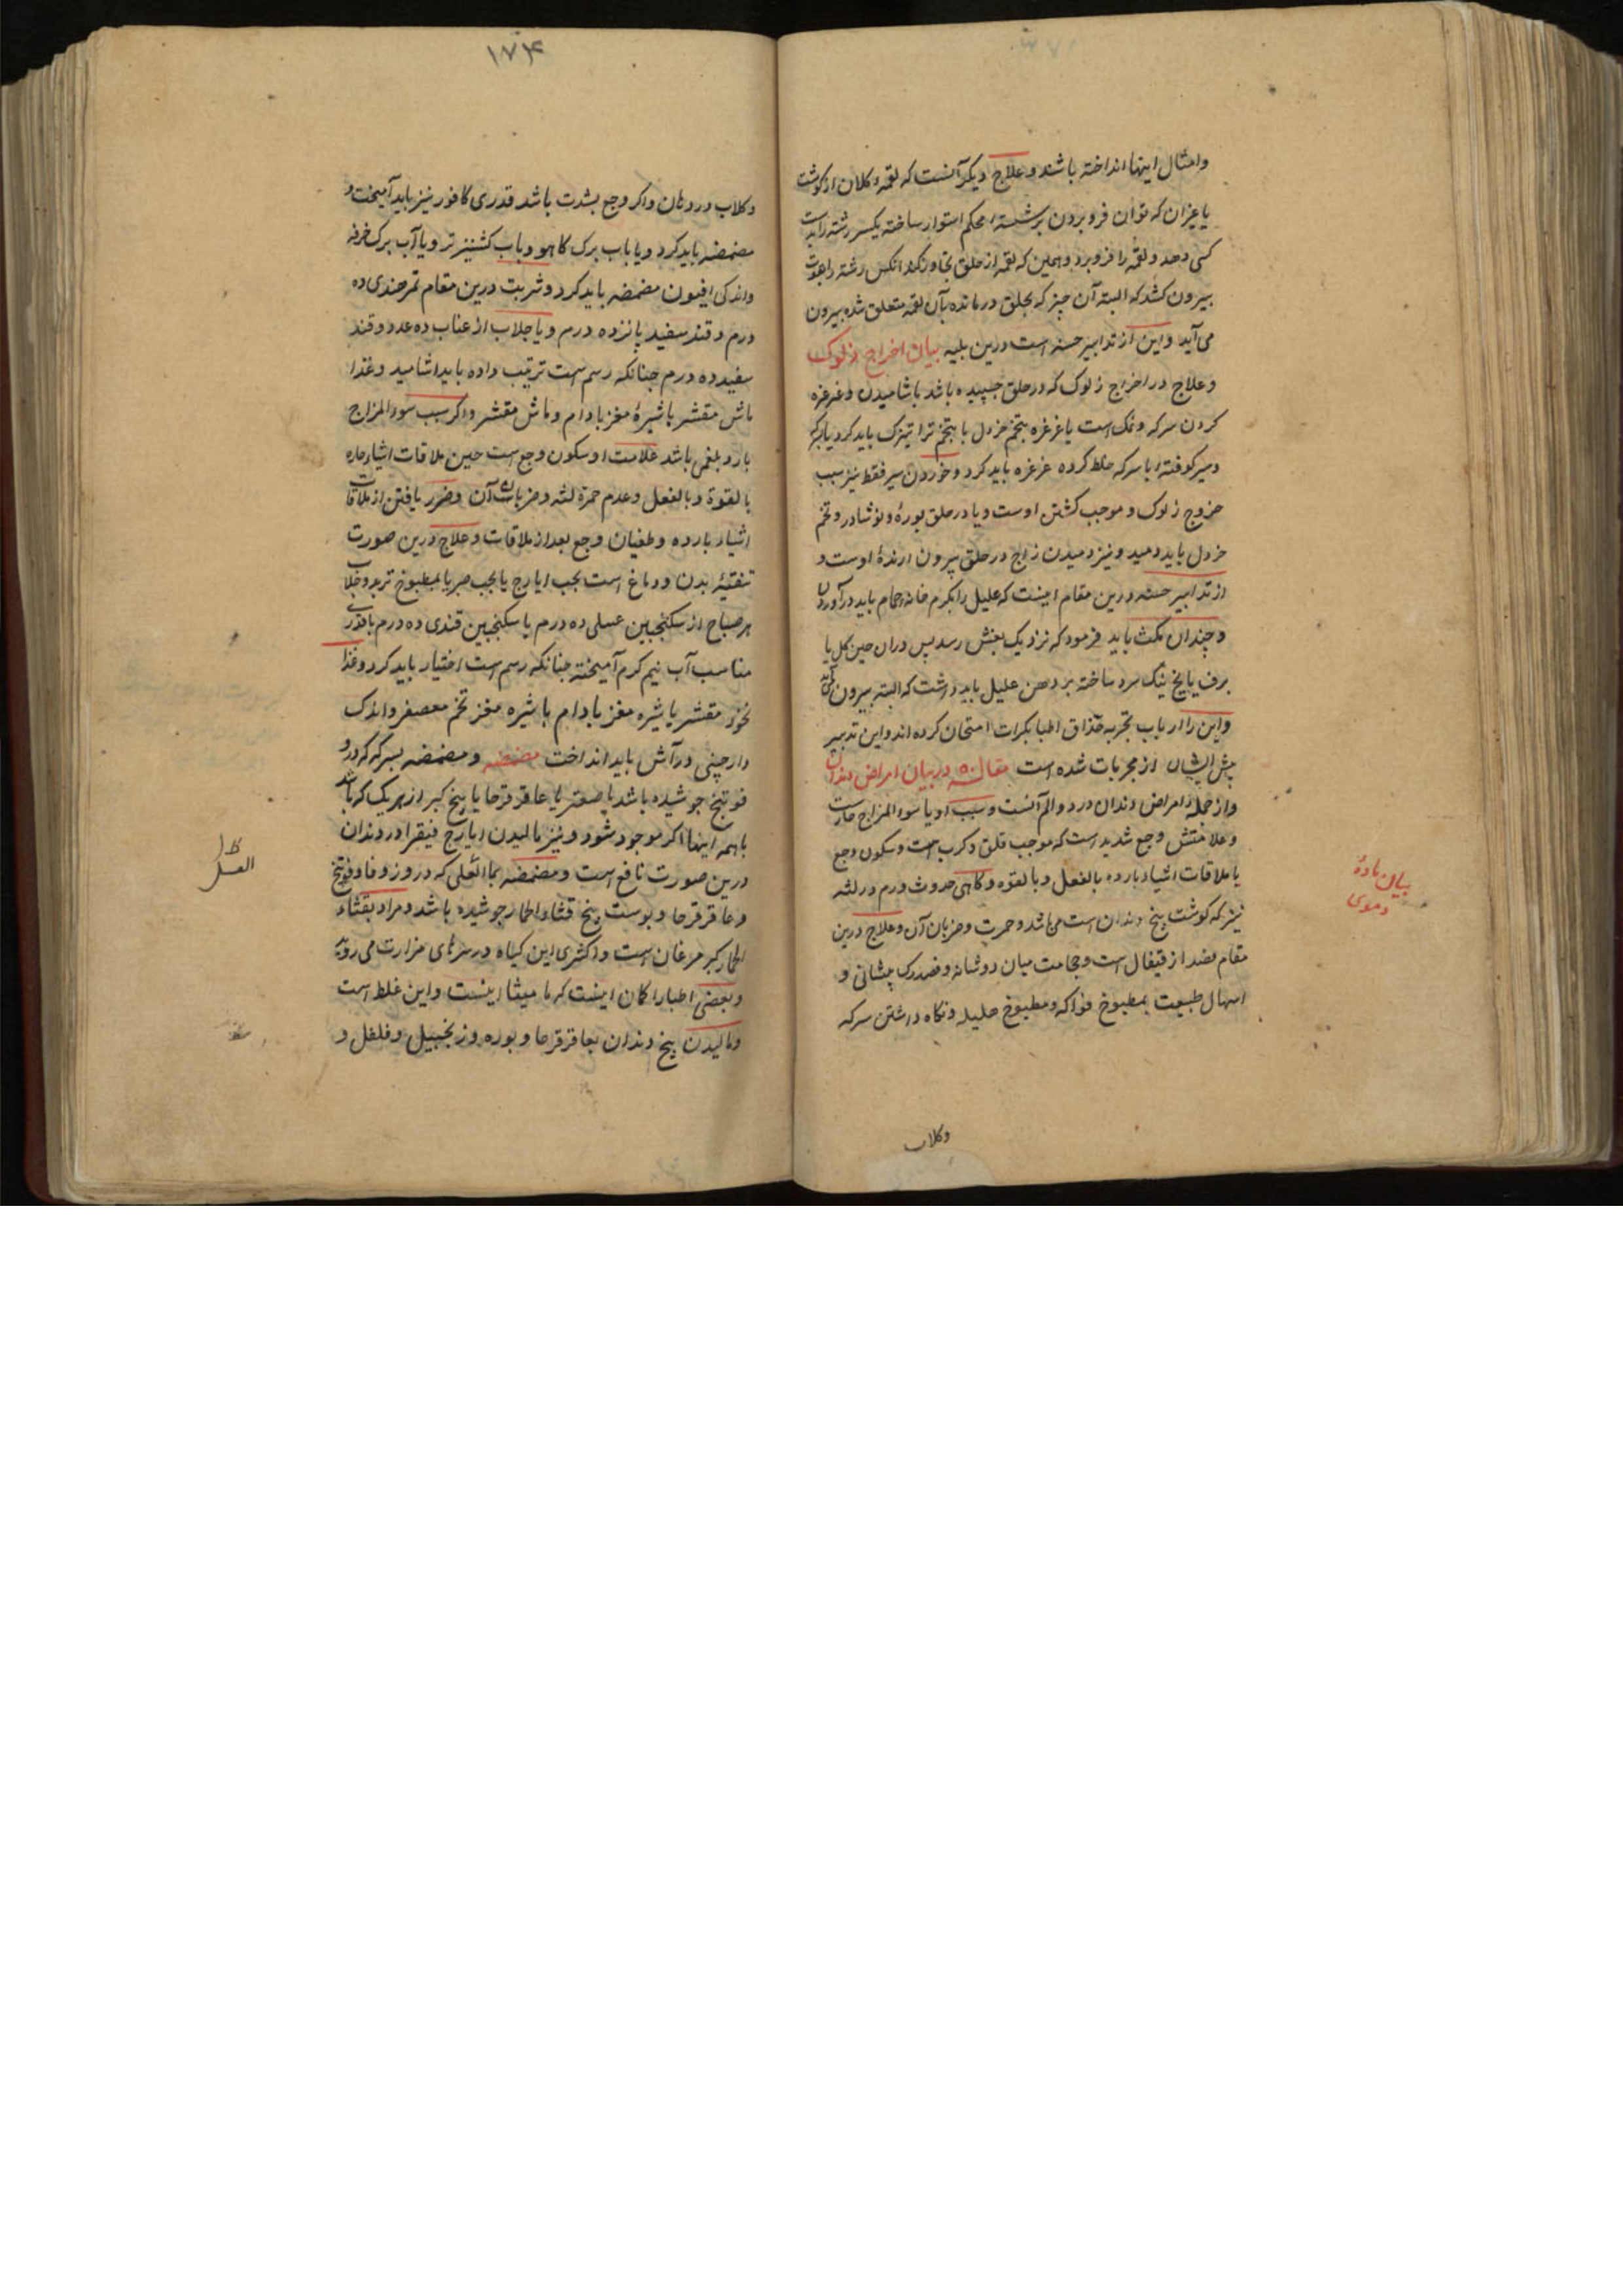 وامثال اینها انداخته باشند و علاج دیگر آنست که لقمه کلان از کوشت
یا غیران که توان فرو بردن برشته محکم استوار ساخته یکسر رشته را بدست
کسی دهد و لقمه را فرو برد و همین که لقمه از حلق تجاوز کند انکس رشته را بقوت
بیرون کشد که البته آن چیز که بحلق در مانده بآن لقمه متعلق شده بیرون
می آید واین از تدابیر حسنه است درین بلیه بیان اخراج زلوک
و علاج در اخراج زلوک که در حلق چسپیده باشد باشامیدن و غرغره
کردن سرکه و نمک است یا غرغره بتخم خردل یا بتخم تراتیزک باید کرد
وسیر کوفته با سرکه خلط کرده غرغره باید کرد و خوردن سیر فقط نیز سبب
خروج زلوک و موجب کشتن اوست و یا در حلق بوره و نوشادر و تخم
خردل باید دمید و نیز دمیدن زاج در حلق بیرون ارندهٔ اوست و
از تدابیر حسنه درین مقام اینست که علیل را بکرم خانه حمام باید در آوردن
و چندان مکث باید فرمود که نزدیک بغش رسد پس دران حین کل یا
برف یا یخ نیک سرد ساخته بر دهن علیل باید داشت که البته بیرون می آید
واین را ارباب تجربه حذاق اطبا بکرات امتحان کرده اند واین تدبیر
پیش ایشان از مجربات شده است مقاله ۵ در بیان امراض دندان
واز جمله امراض دندان درد و الم آنست و سبب او یا سوء المزاج حارست
و علامتش وجع شدید است که موجب قلق و کرب است و سکون وجع
با ملاقات اشیاء بارده بالفعل و بالقوه و کاهی حدوث ورم در لثه
نیز که کوشت بیخ دندان است می باشد و حمرت و ضربان آن و علاج درین
مقام فصد از قیفال است و حجامت میان دو شانه و فصد رک پیشانی و
اسهال طبیعت بمطبوخ فواکه و مطبوخ هلیله و نکاه داشتن سرکه
وکلاب
بیان مادهٔ
دموی
۱۷۴
وکلاب در دهان واکر وجع بشدت باشد قدری کافور نیز باید آمیخت و
مضمضه باید کرد و یا باب برک کاهو و باب کشنیز تر و یا آب برک خرفه
واندکی افیون مضمضه باید کرد و شربت درین مقام تمر هندی ده
درم و قند سفید پانزده درم و یا جلاب از عناب ده عدد و قند
سفید ده درم چنانکه رسم است ترتیب داده باید اشامید و غذا
ماش مقشر با شیرهٔ مغز بادام و ماش مقشر واکر سبب سوء المزاج
بارد بلغمی باشد علامت او سکون وجع است حین ملاقات اشیاء حاره
بالقوة و بالفعل و عدم حمرة لثه و ضربات آن و ضرر یافتن از ملاقات
اشیاء بارده و طغیان وجع بعد از ملاقات و علاج درین صورت
تنقیهٔ بدن و دماغ است بحب ایارج یا بحب صبر یا بمطبوخ تربد و جلاب
هر صباح از سکنجبین عسلی ده درم یا سکنجبین قندی ده درم با قدری
مناسب آب نیم کرم آمیخته چنانکه رسم است اختیار باید کرد و غذا
نخود مقشر با شیره مغز بادام با شیره مغز تخم معصفر و اندک
دارچینی در آش باید انداخت مضمضه و مضمضه بسرکه که درو
فوتنج جوشیده باشد یا صعتر یا عاقر قرحا یا بیخ کبر از هر یک که باشد
یا همه اینها اکر موجود شود و نیز مالیدن ایارج فیقرا در دندان
درین صورت نافع است و مضمضه بما العسلی که در و زوفا و فوتنج
و عاقر قرحا و پوست بیخ قثاء الحمار جوشیده باشد و مراد بقثاء
الحمار کبر مرغان است و اکثری این کیاه در سرهای مزارت می روید
و بعضی اطبا را کمان اینست که مامیثا اینست و این غلط است
و مالیدن بیخ دندان بعاقر قرحا و بوره و زنجبیل و فلفل و
العسل